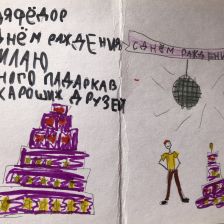 ДЯФЁДОР
ДНЁМ РАЖДЕНИЯ
ИЛАЮ
НОГО ПАДАРКАВ
ХАРОШИХ ДРУЗЕЙ
С ДНЁМ РАЖДЕНИ